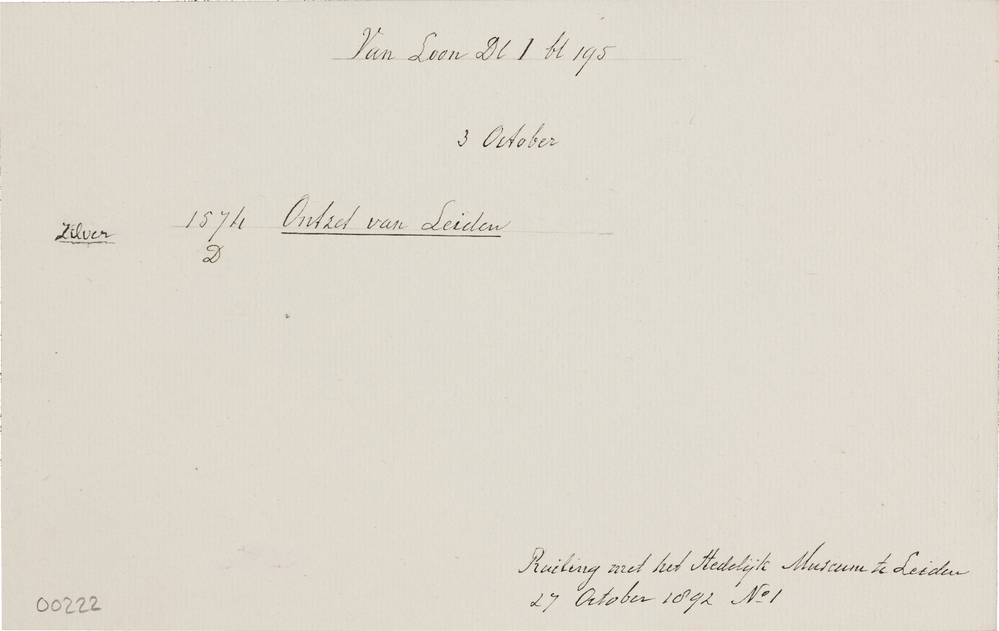 Van Loon Dl 1 bl 195
3 October
Zilver 1574 Ontzet van Leiden
D
Ruiling met het Stedelijk Museum te Leiden
27 October 1892 No 1
00222